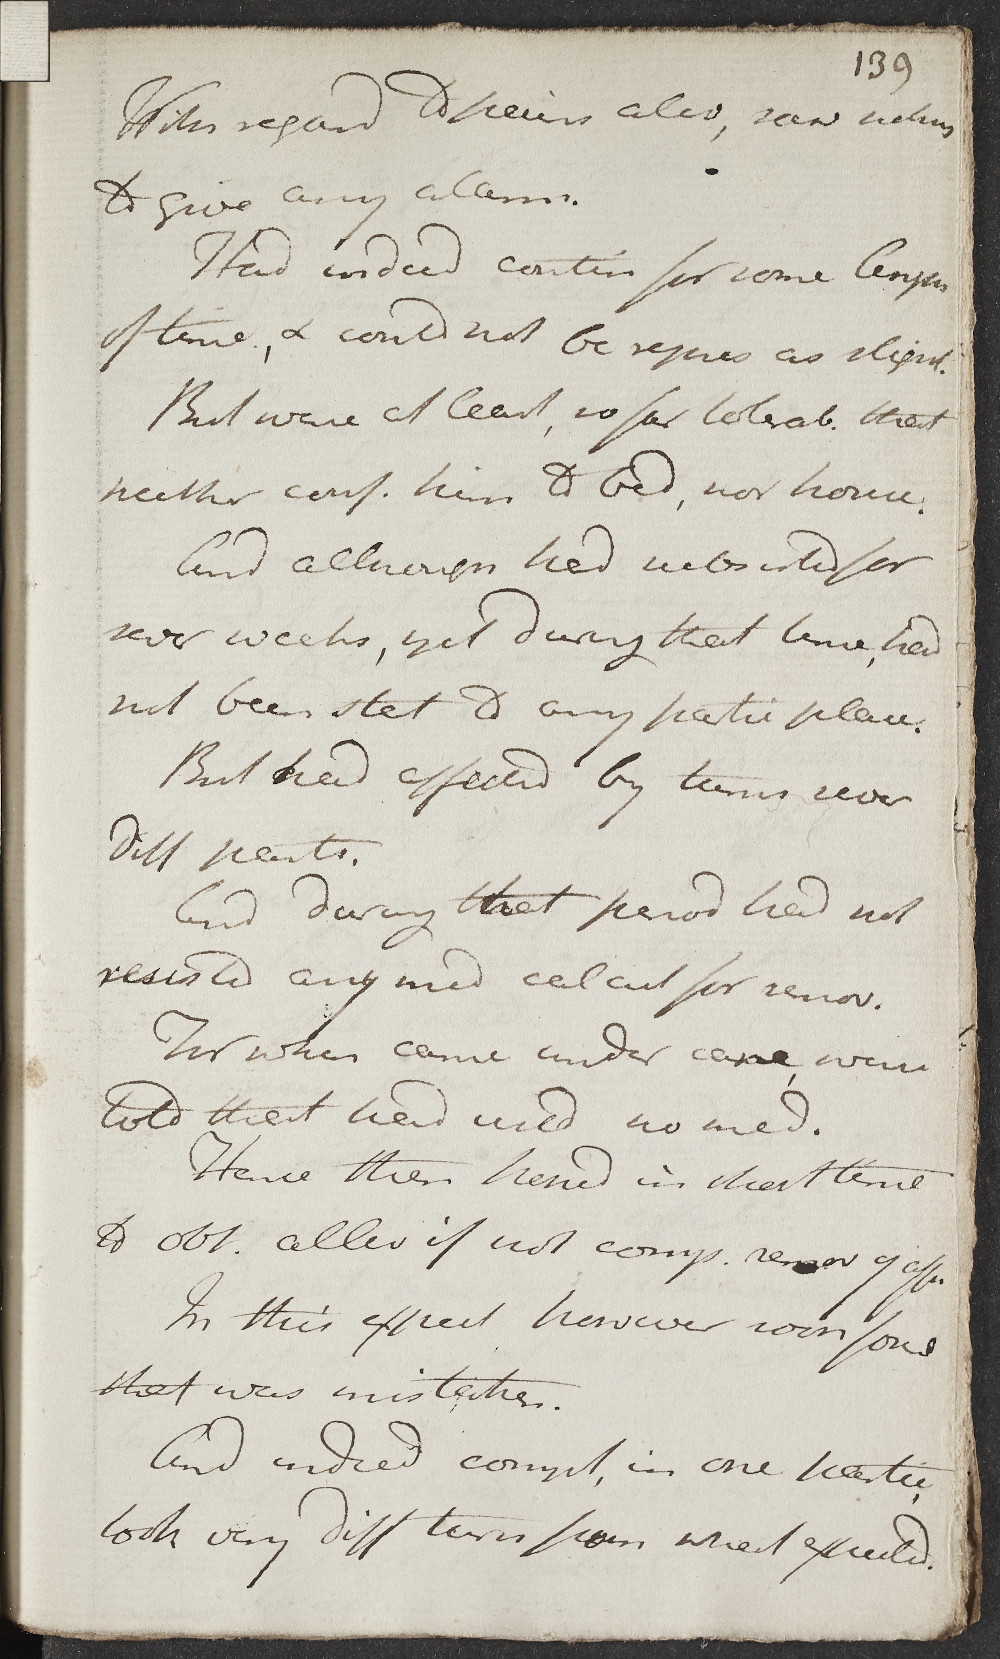 139
With regard to pains also, saw nothing
to give any alarm.
Had indeed contin for some length
of time, & could not be repres as slight.
But were at least, so far tolerab. that
neither conf. him to bed, nor house.
And although had subsisted for
sever weeks, yet during that time, had
not been stat to any partic place.
But had affected by turns sever
diff parts.
And during that period had not
resisted any med calcul for remov.
For when came under care, were
told that had used no med.
Hence then hoped in short time
to obt. allev if not comp. remov of affn
In this expect however soon found
that was mistaken.
And indeed compl, in one partic,
took very diff turn from what expected.